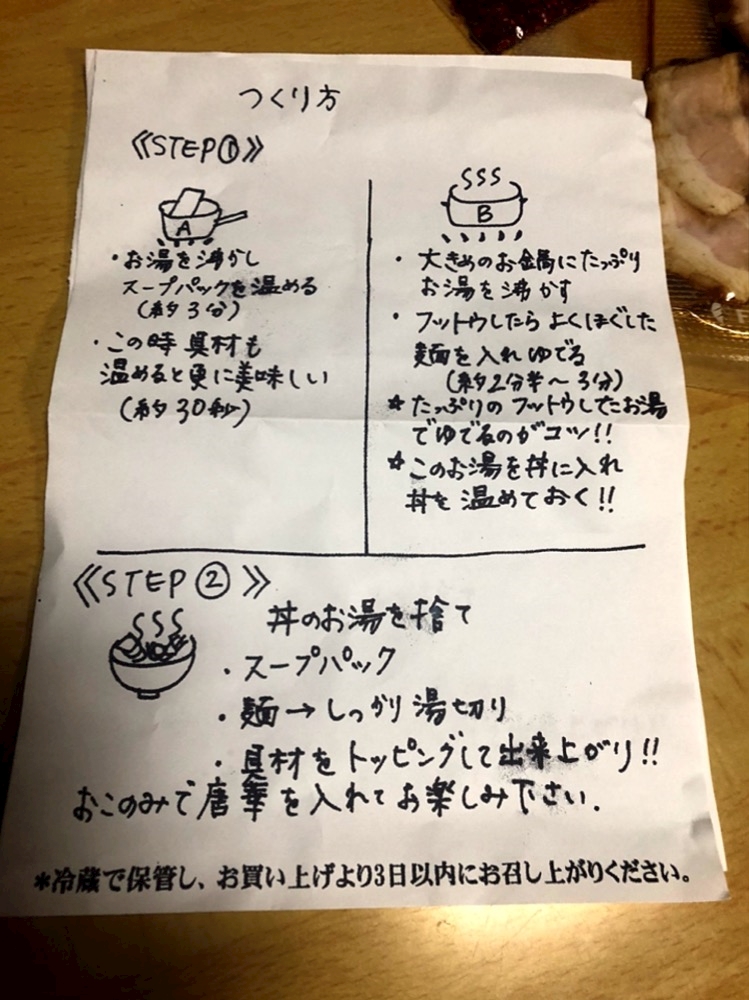 つくり方
《STEP①》
A
・お湯を沸かし
スープパックを温める
(約3分)
・この時 具材も
温めると更に美味しい
(約30秒)
B
・大きめのお鍋にたっぷり
お湯を沸かす
・フットウしたら よくほぐした
麺を入れ ゆでる
(約2分半～3分)
☆たっぷりの フットウしたお湯
でゆでるのがコツ!!
☆このお湯を丼に入れ
丼を 温めておく!!
《STEP②》
丼のお湯を捨て
・スープパック
・麺→しっかり 湯切り
・具材をトッピングして出来上がり!!
おこのみで唐華を入れてお楽しみ下さい.
*冷蔵で保管し、お買い上げより3日以内にお召し上がりください。